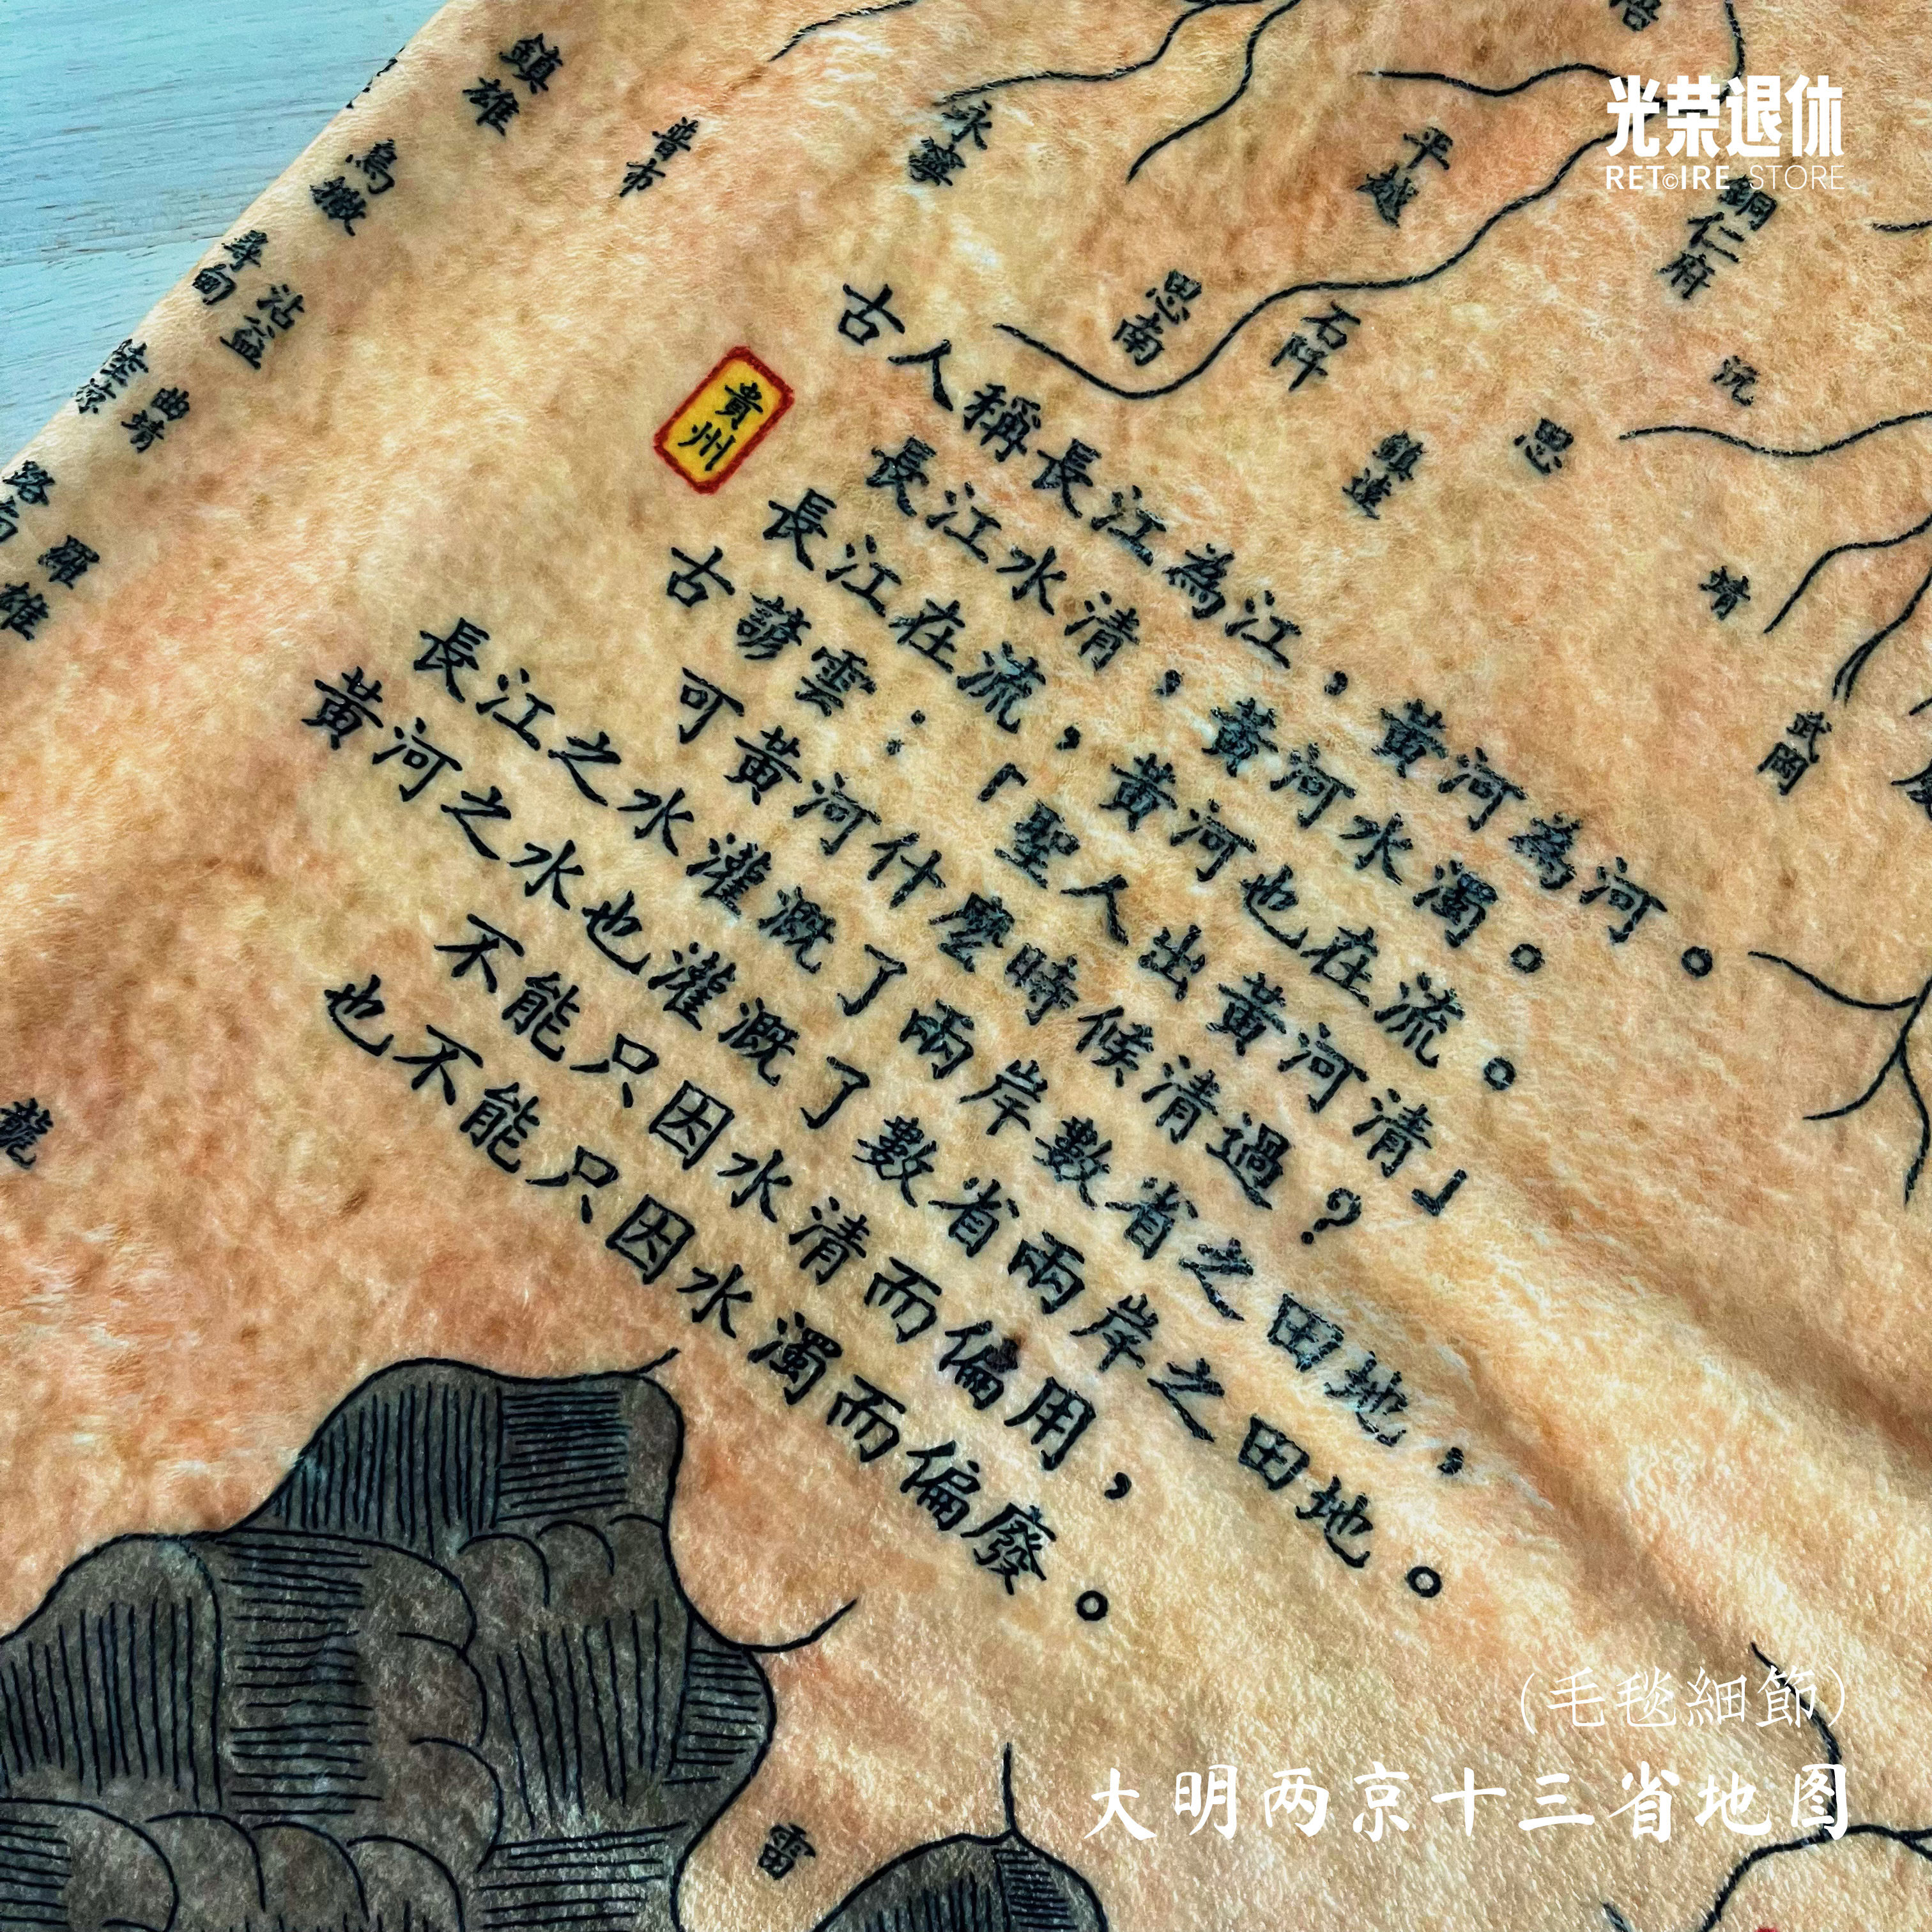 光荣退休
RET©IRE STORE
鎮雄
普市
永寧
烏撒
平越
銅仁府
尋甸
沾益
思南
石阡
陸涼
曲靖
沅
貴州
鎮遠
思
路南
羅雄
靖
武岡
古人稱長江為江，黃河為河。
長江水清，黃河水濁。
長江在流，黃河也在流。
古諺雲：「聖人出黃河清」
可黃河什麼時候清過？
長江之水灌溉了兩岸數省之田地，
黃河之水也灌溉了數省兩岸之田地。
不能只因水清而偏用，
也不能只因水濁而偏廢。
龍
雷
(毛毯細節)
大明两京十三省地图